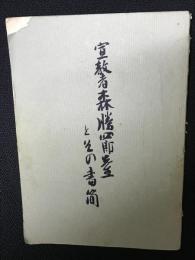 宣教者森勝四郎先生
とその書簡